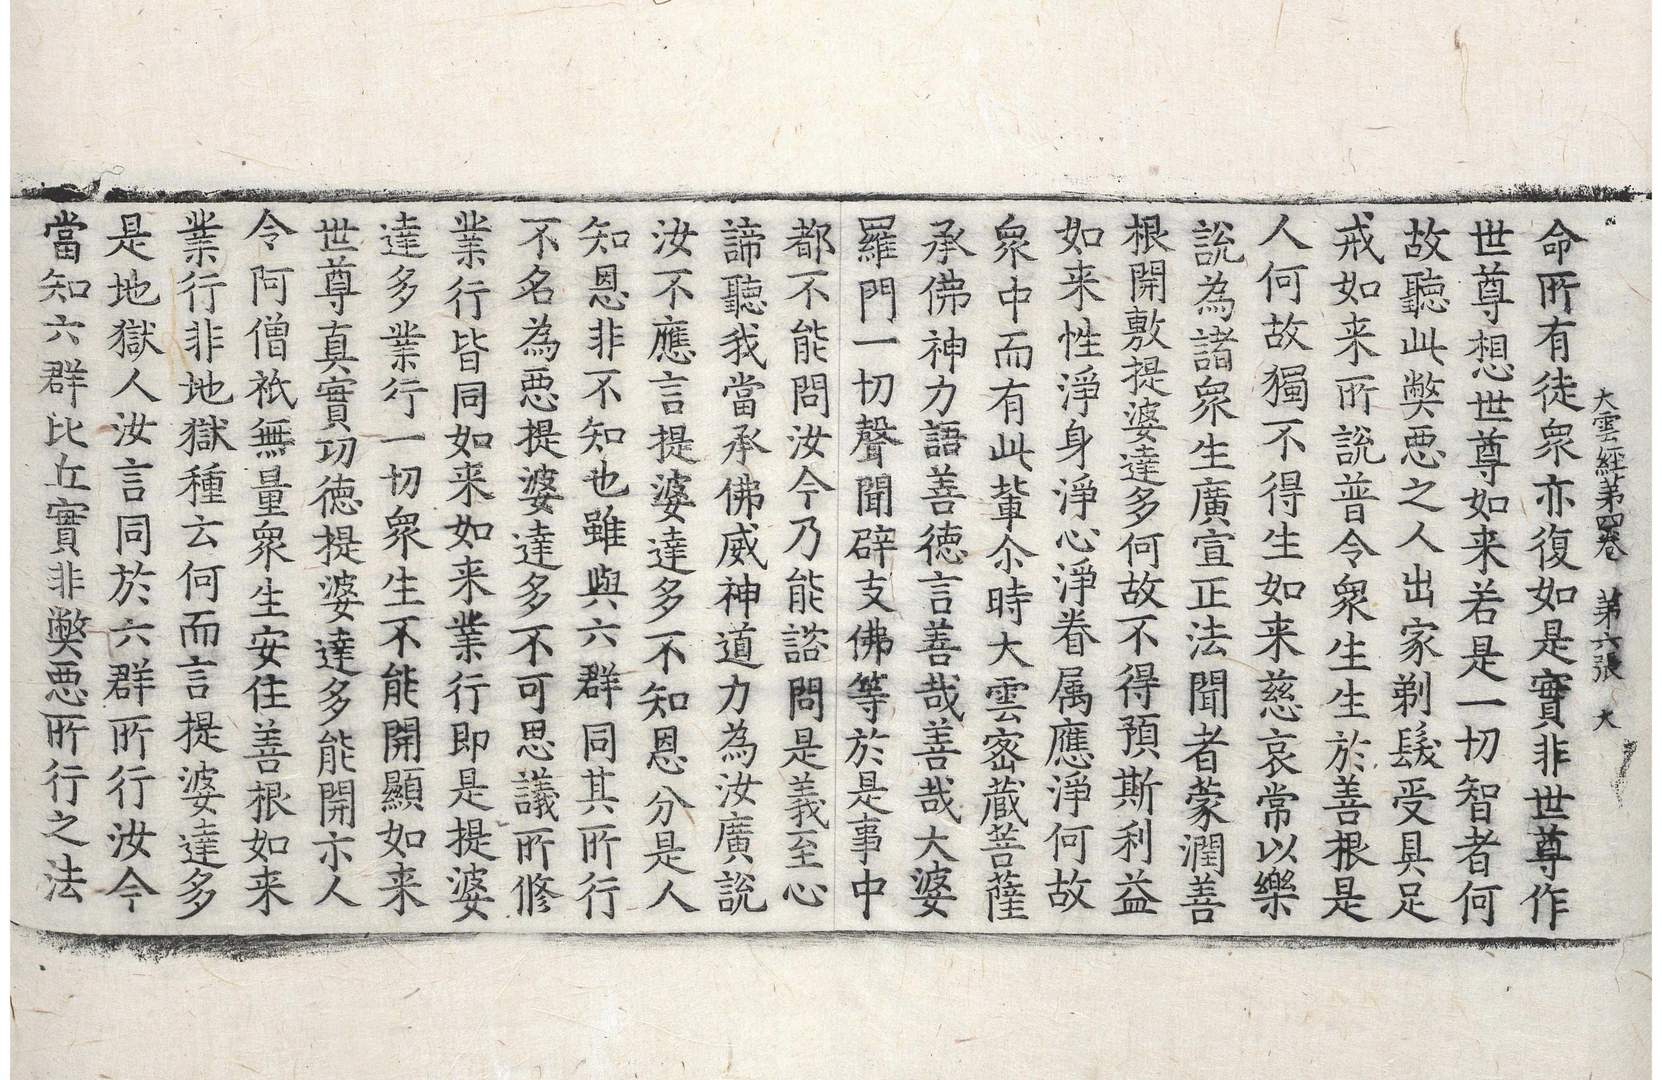 大雲経苐四巻　苐六張　大
命所有徒衆亦復如是實非世尊作
世尊想世尊如来若是一切智者何
故聽此弊惡之人出家剃髮受具足
戒如来所說普令衆生生於善根是
人何故獨不得生如来慈哀常以樂
說為諸衆生廣宣正法聞者蒙潤善
根開敷提婆達多何故不得預斯利益
如来性淨身淨心淨眷属應淨何故
衆中而有此輩尒時大雲密蔵菩薩
承佛神力語善德言善哉善哉大婆
羅門一切聲聞辟支佛等於是事中
都不能問汝今乃能諮問是義至心
諦聽我當承佛威神道力為汝廣說
汝不應言提婆達多不知恩分是人
知恩非不知也雖與六群同其所行
不名為惡提婆達多不可思議所修
業行皆同如来如来業行即是提婆
達多業行一切衆生不能開顯如来
世尊真實功德提婆達多能開示人
令阿僧祇無量衆生安住善根如来
業行非地獄種云何而言提婆達多
是地獄人汝言同於六群所行汝今
當知六群比丘實非弊惡所行之法